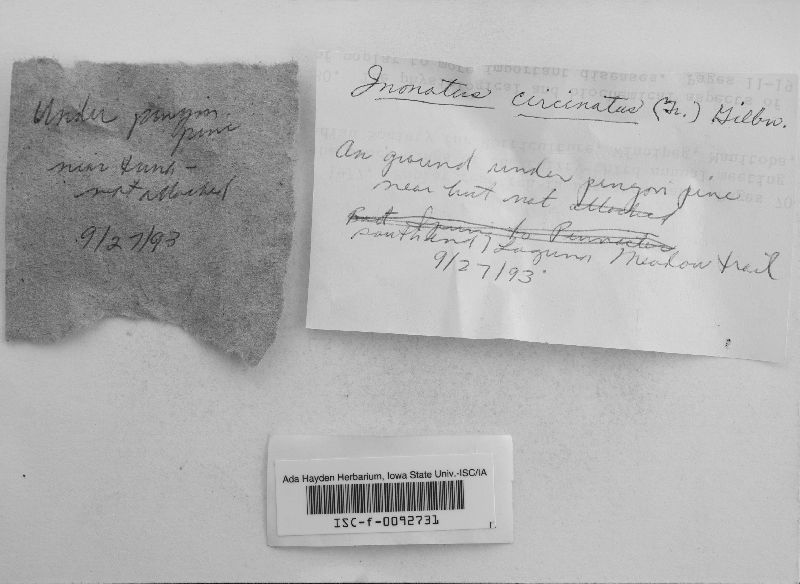 Under pinyon
pine
near trunk -
not attached
9/27/93
Inonotus circinatus (Fr.) Gilbn.
On ground under pinyon pine
near but not attached
Boot Spring to Pinnacles
south end, Laguna Meadow trail
9/27/93
Ada Hayden Herbarium, Iowa State Univ.-ISC/IA
ISC-f-0092731